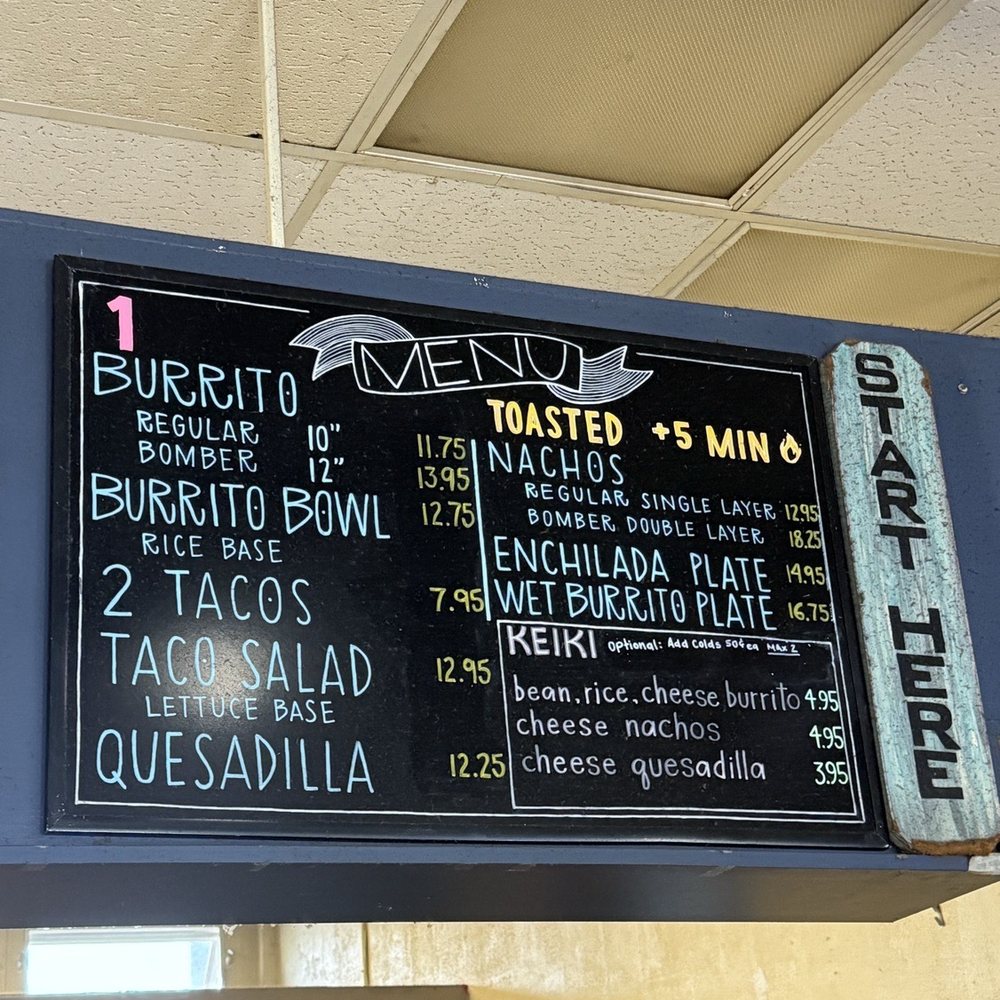 1
MENU
BURRITO
REGULAR 10" 11.75
BOMBER 12" 13.95
BURRITO BOWL 12.75
RICE BASE
2 TACOS 7.95
TACO SALAD 12.95
LETTUCE BASE
QUESADILLA 12.25
TOASTED +5 MIN
NACHOS
REGULAR SINGLE LAYER 12.95
BOMBER DOUBLE LAYER 18.25
ENCHILADA PLATE 14.95
WET BURRITO PLATE 16.75
KEIKI optional: Add Colds 50¢ea MAX 2
bean, rice, cheese burrito 4.95
cheese nachos 4.95
cheese quesadilla 3.95
START HERE